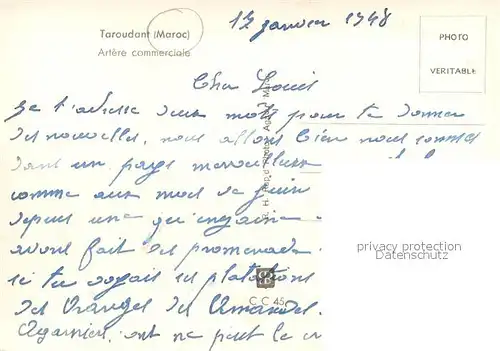 12 janvier 1948
Taroudant (Maroc)
Artère commerciale
PHOTO
VERITABLE
Cher Louis
Je t'adresse deux mots pour te donner
des nouvelles, nous allons bien nous sommes
dans un pays merveilleux
comme aux mois de Juin
depuis une
avons fait des promenades
si tu voyais les plantations
des Oranges des Amandes
ont ne peut le
privacy protection
Datenschutz
C C 45